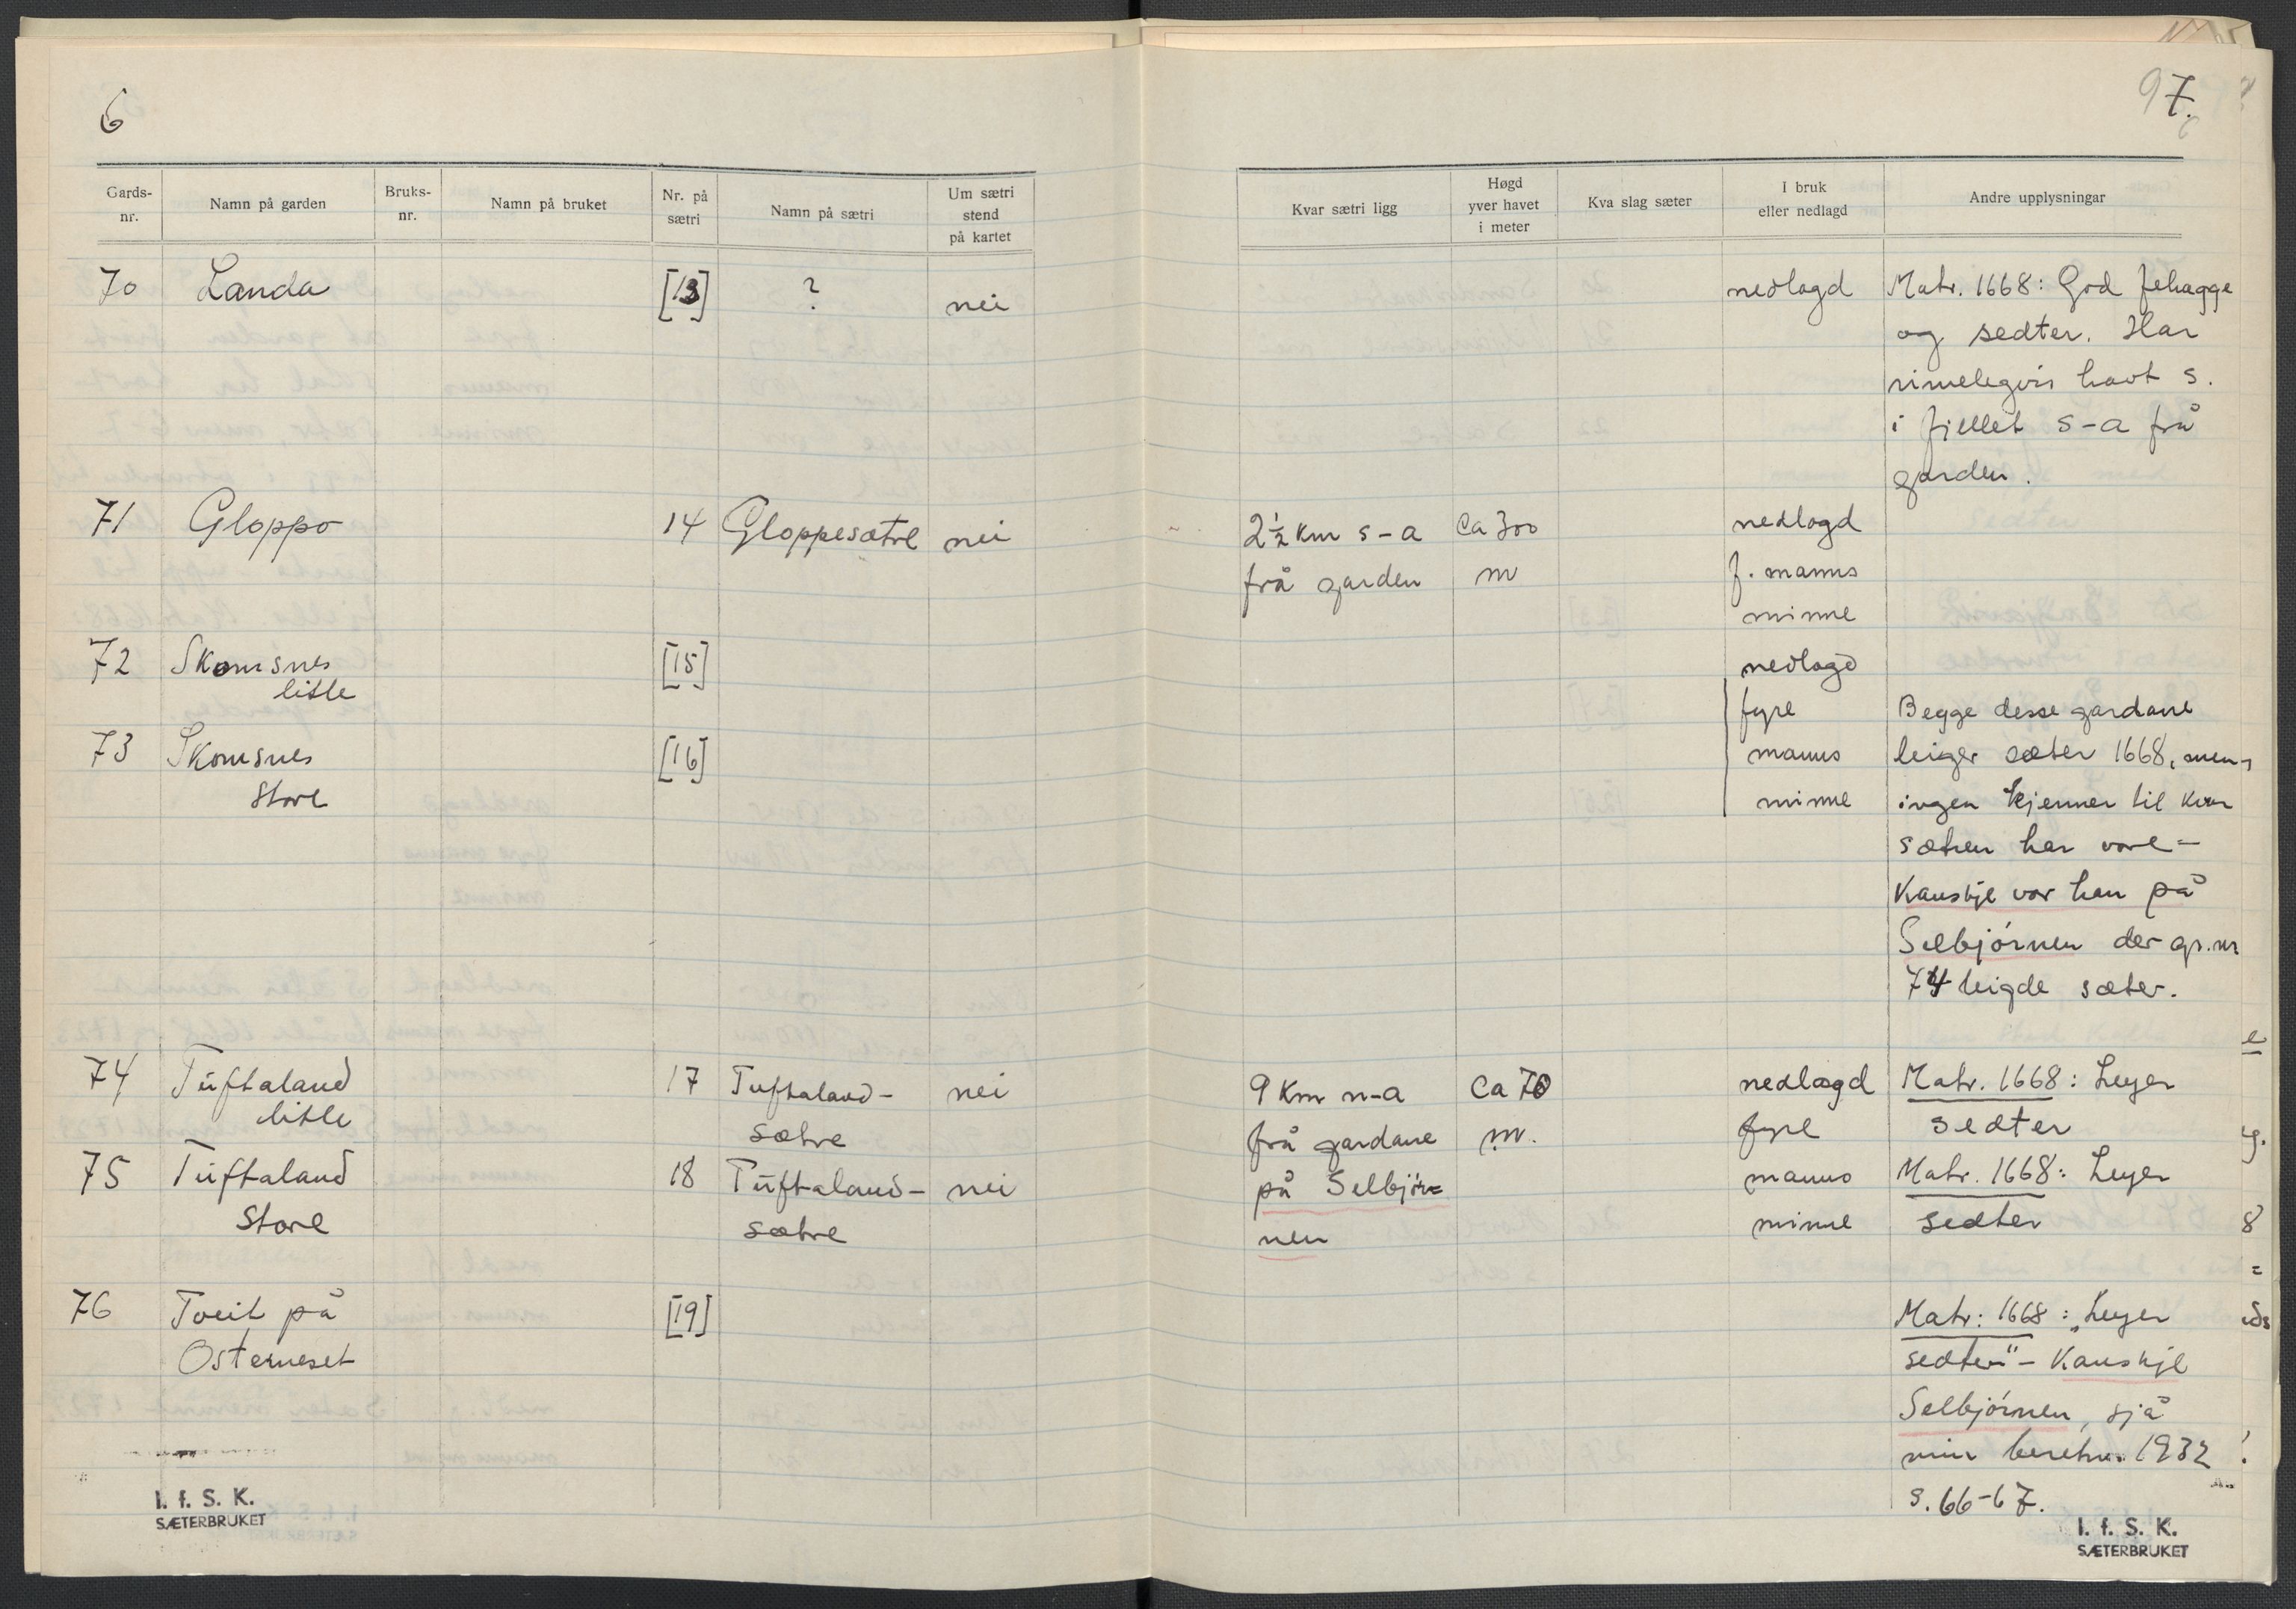 6
97.
Gards-nr. Namn på garden Bruks-nr. Namn på bruket Nr. på sætri Namn på sætri Um sætri stend på kartet Kvar sætri ligg Høgd yver havet i meter Kva slag sæter I bruk eller nedlagd Andre upplysningar
70 Landa [13] ? nei nedlagd Matr. 1668: God fehagge
og sedter. Har
rimelegvis havt s.
i fjellet s-a frå
garden.
71 Gloppo 14 Gloppesætre nei 2½ km s-a Ca 300 nedlagd
frå garden m f. manns
minne
72 Skomsnes [15] nedlagd
litle fyre Begge desse gardane
73 Skomsnes [16] manns leiger sæter 1668, men
Store minne ingen kjenner til kvar
sætren har vore-
Kanskje var han på
Selbjörnen der gr. nr
74 leigde sæter.
74 Tuftaland 17 Tuftaland- nei 9 Km n-a Ca 70 nedlagd Matr. 1668: Leyer
litle sætre frå gardane m. fyre sedter
75 Tuftaland 18 Tuftaland- nei på Selbjör= manns Matr. 1668: Leyer
Store sætre nen minne sedter
76 Tveit på [19] Matr: 1668: „Leyer
Osterneset sedter" - Kanskje
Selbjörnen, sjå
min beretn. 1932
s. 66-67.
I. f. S. K.
SÆTERBRUKET
I. f. S. K.
SÆTERBRUKET